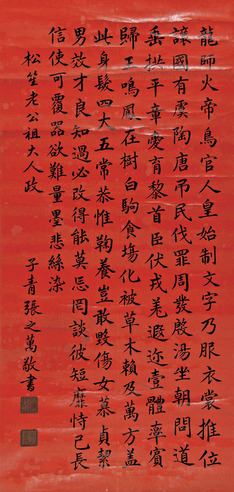 龍師火帝鳥官人皇始制文字乃服衣裳推位
讓國有虞陶唐弔民伐罪周發殷湯坐朝問道
垂拱平章愛育黎首臣伏戎羌遐迩壹體率賓
歸王鳴鳳在樹白駒食塲化被草木賴及萬方蓋
此身髮四大五常恭惟鞠養豈敢毀傷女慕貞絜
男效才良知過必改得能莫忘罔談彼短靡恃己長
信使可覆器欲難量墨悲絲染
松笙老公祖大人政
子青張之萬敬書